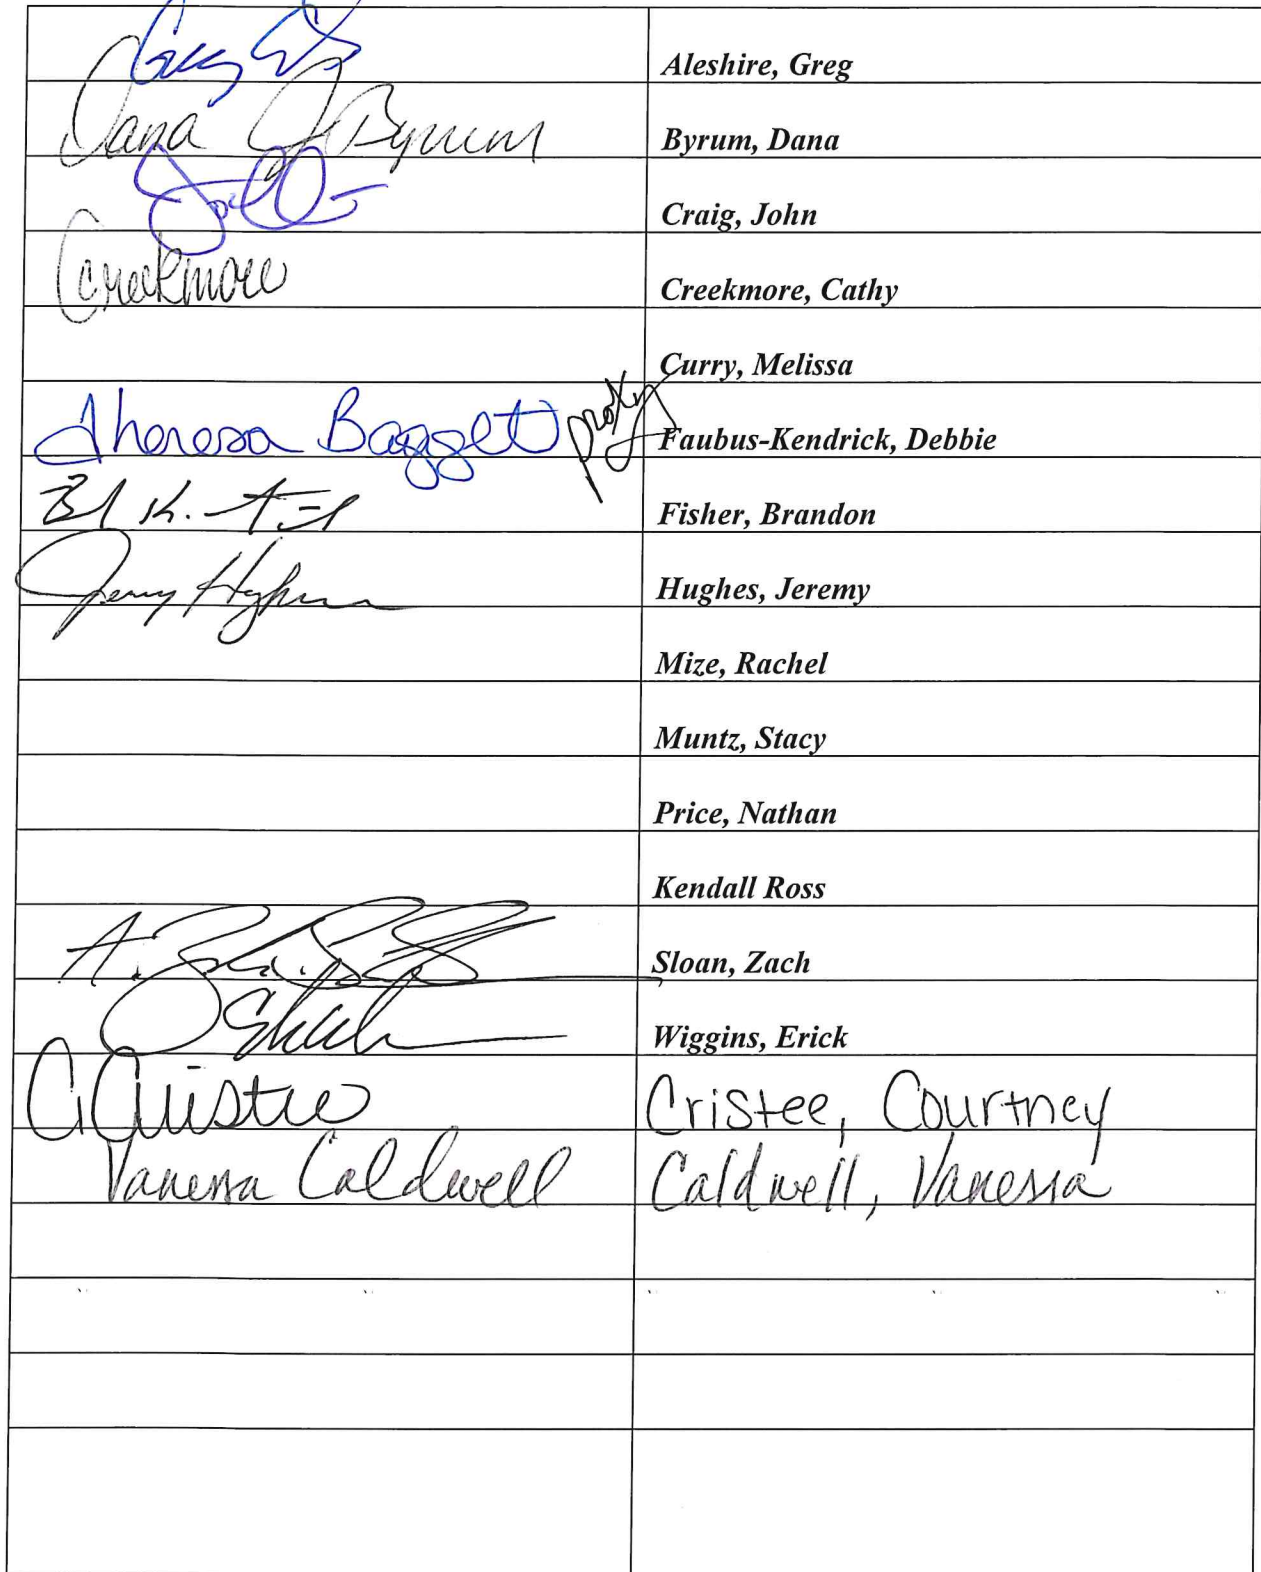 Aleshire, Greg
Dana J Byrum Byrum, Dana
Craig, John
Creekmore Creekmore, Cathy
Curry, Melissa
Theresa Baggett proxy Faubus-Kendrick, Debbie
Fisher, Brandon
Hughes, Jeremy
Mize, Rachel
Muntz, Stacy
Price, Nathan
Kendall Ross
Sloan, Zach
Wiggins, Erick
Cristee, Courtney
Vanessa Caldwell Caldwell, Vanessa